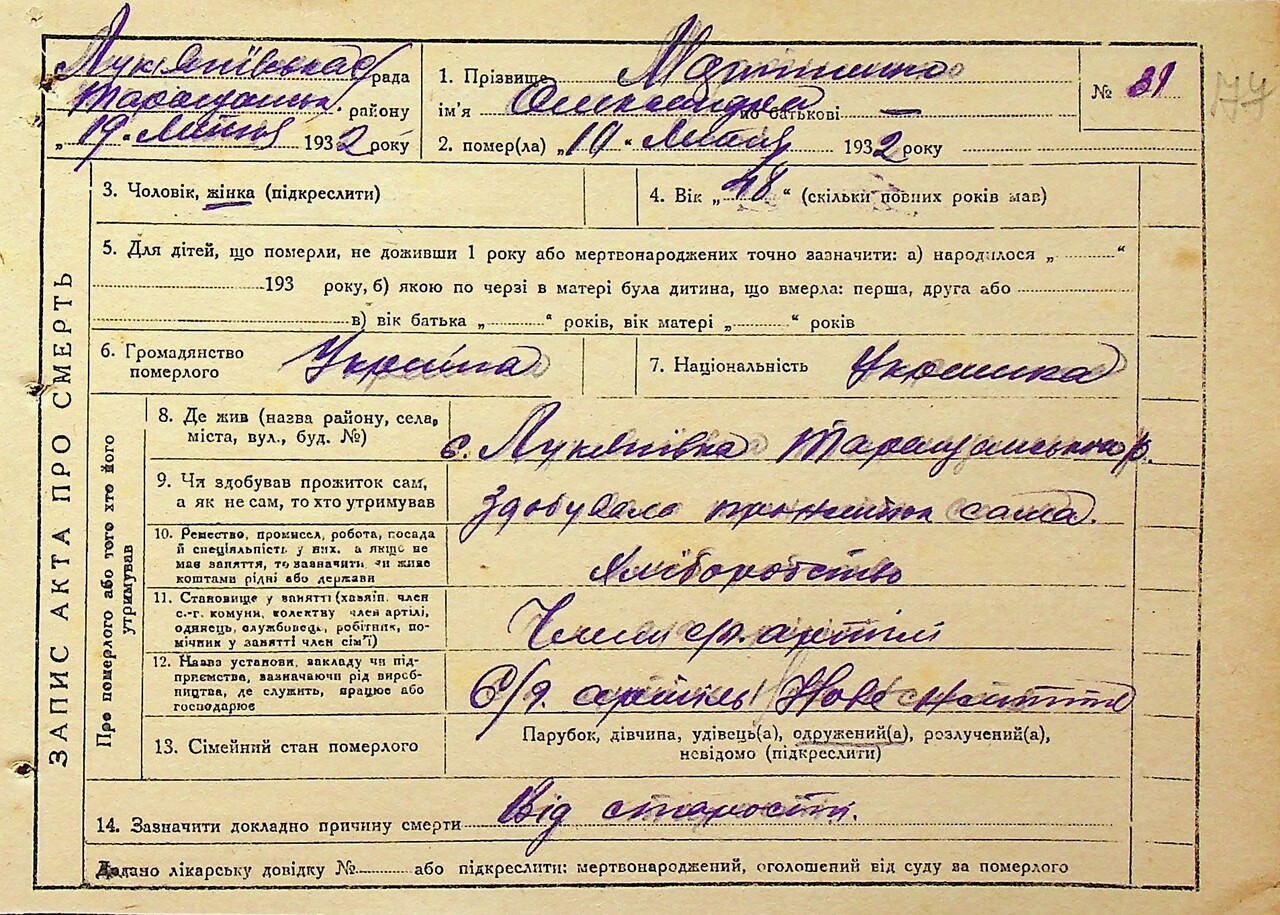 Лукʼянівська рада
Таращанськ. району
„19“ липня 1932 року
1. Прізвище
імʼя Олександра по батькові —
2. помер(ла) „10“ липня 1932 року
№ 31
74
ЗАПИС АКТА ПРО СМЕРТЬ
3. Чоловік, жінка (підкреслити)
4. Вік „48“ (скільки повних років мав)
5. Для дітей, що померли, не доживши 1 року або мертвонароджених точно зазначити: а) народилося „ “
193 року, б) якою по черзі в матері була дитина, що вмерла: перша, друга або
в) вік батька „ “ років, вік матері „ “ років
6. Громадянство
померлого
Україна
7. Національність
Українка
Про померлого або того хто його
утримував
8. Де жив (назва району, села,
міста, вул., буд. №)
с. Лукянівка Таращанського р.
9. Чи здобував прожиток сам,
а як не сам, то хто утримував
Здобувала прожиток сама.
10. Ремество, промисел, робота, посада
й спеціяльність у них, а якщо не
має заняття, то зазначити чи живе
коштами рідні або держави
Хліборобство
11. Становище у занятті (хазяїн, член
с.-г. комуни, колективу член артілі,
одинець, службовець, робітник, по-
мічник у занятті член сімʼї)
Член артілі
12. Назва установи, закладу чи під-
приємства, зазначаючи рід вироб-
ництва, де служить, працює або
господарює
С/г. артіль Нове життя
13. Сімейний стан померлого
Парубок, дівчина, удівець(а), одружений(а), розлучений(а),
невідомо (підкреслити)
14. Зазначити докладно причину смерти Від старости.
Додано лікарську довідку № або підкреслити: мертвонароджений, оголошений від суду за померлого